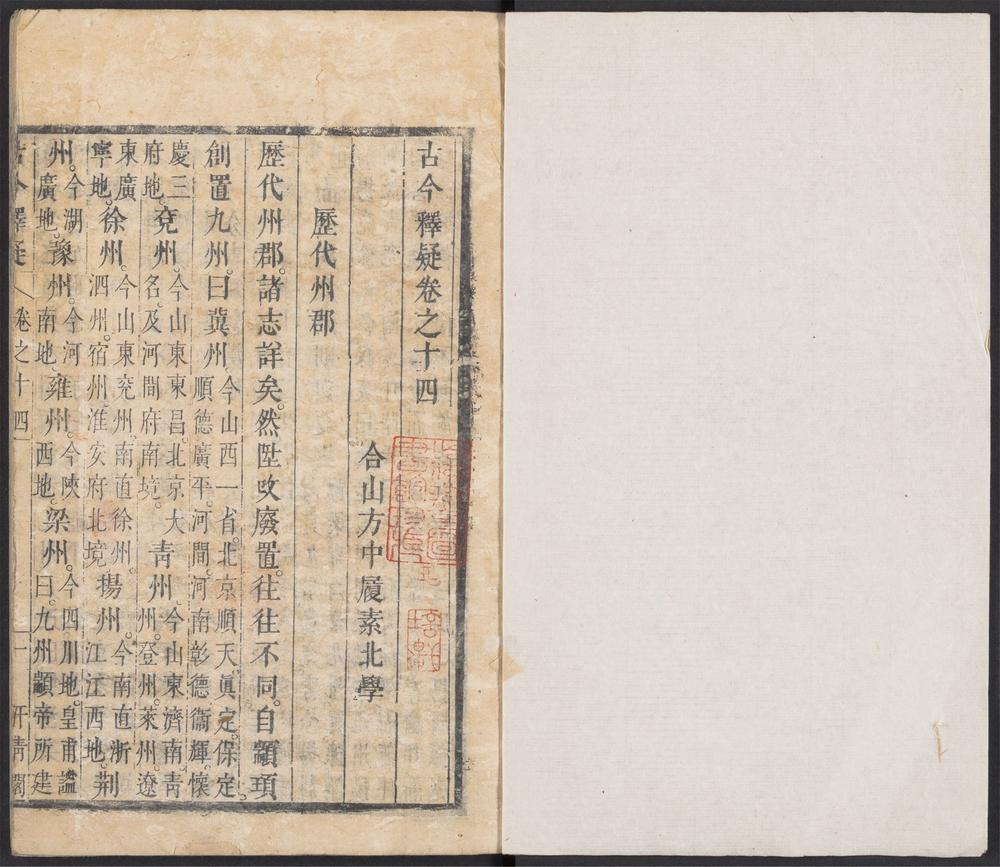 古今釋疑卷之十四
合山方中履素北學
歷代州郡
歷代州郡諸志詳矣然陞攺廢置往往不同自顓頊
創置九州曰冀州今山西一省北京順天眞定保定
順德廣平河間河南彰德衞輝懷
慶三
府地兗州今山東東昌北京大
名及河間府南境青州今山東濟南青
州登州萊州遼
東廣
寧地徐州今山東兗州南直徐州
泗州宿州淮安府北境揚州今南直浙
江江西地荆
州今湖
廣地豫州今河
南地雍州今陝
西地梁州今四川地皇甫謐
曰九州顓帝所建
古今釋疑 卷之十四 一 汗青閣